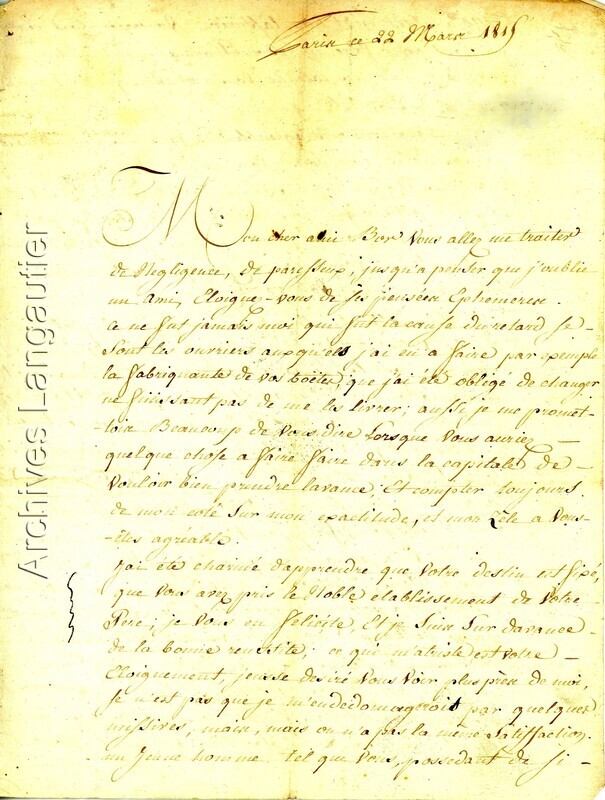 Paris ce 22 Mars 1815
Mon cher ami Bor vous allez me traiter
de Negligence, de paresseux, jusqu'a penser que j'oublie
un ami, Eloigne-vous de ses pensées Ephemeres.
Ce ne fut jamais moi qui fut la cause du retard se
sont les ouvriers auxquels j'ai eu a faire par exemple
la fabriquante de vos boëtes, que j'ai été obligé de changer
ne finissant pas de me les livrer; aussi je me promet-
-tois Beaucoup de vous dire Lorsque vous auriez -
quelque chose a faire faire dans la capitale de -
vouloir bien prendre lavance, Et compter toujours.
de mon coté sur mon exactitude, et mon Zèle a vous-
-êtes agréable.
J'ai été charmée d'apprendre que votre destin est fixé,
que vous avez pris le Noble etablissement de votre
Pere; je vous en félicite, Et je suis sur davance
de la bonne reussite; ce qui m'atriste est votre -
Eloignement, jeusse desiré vous voir plus près de moi,
se n'est pas que je m'endedomagerois par quelques
missives, mais, mais on n'a pas la même satisfaction.
un Jeune homme tel que vous, possedant de si -
Archives Langautier